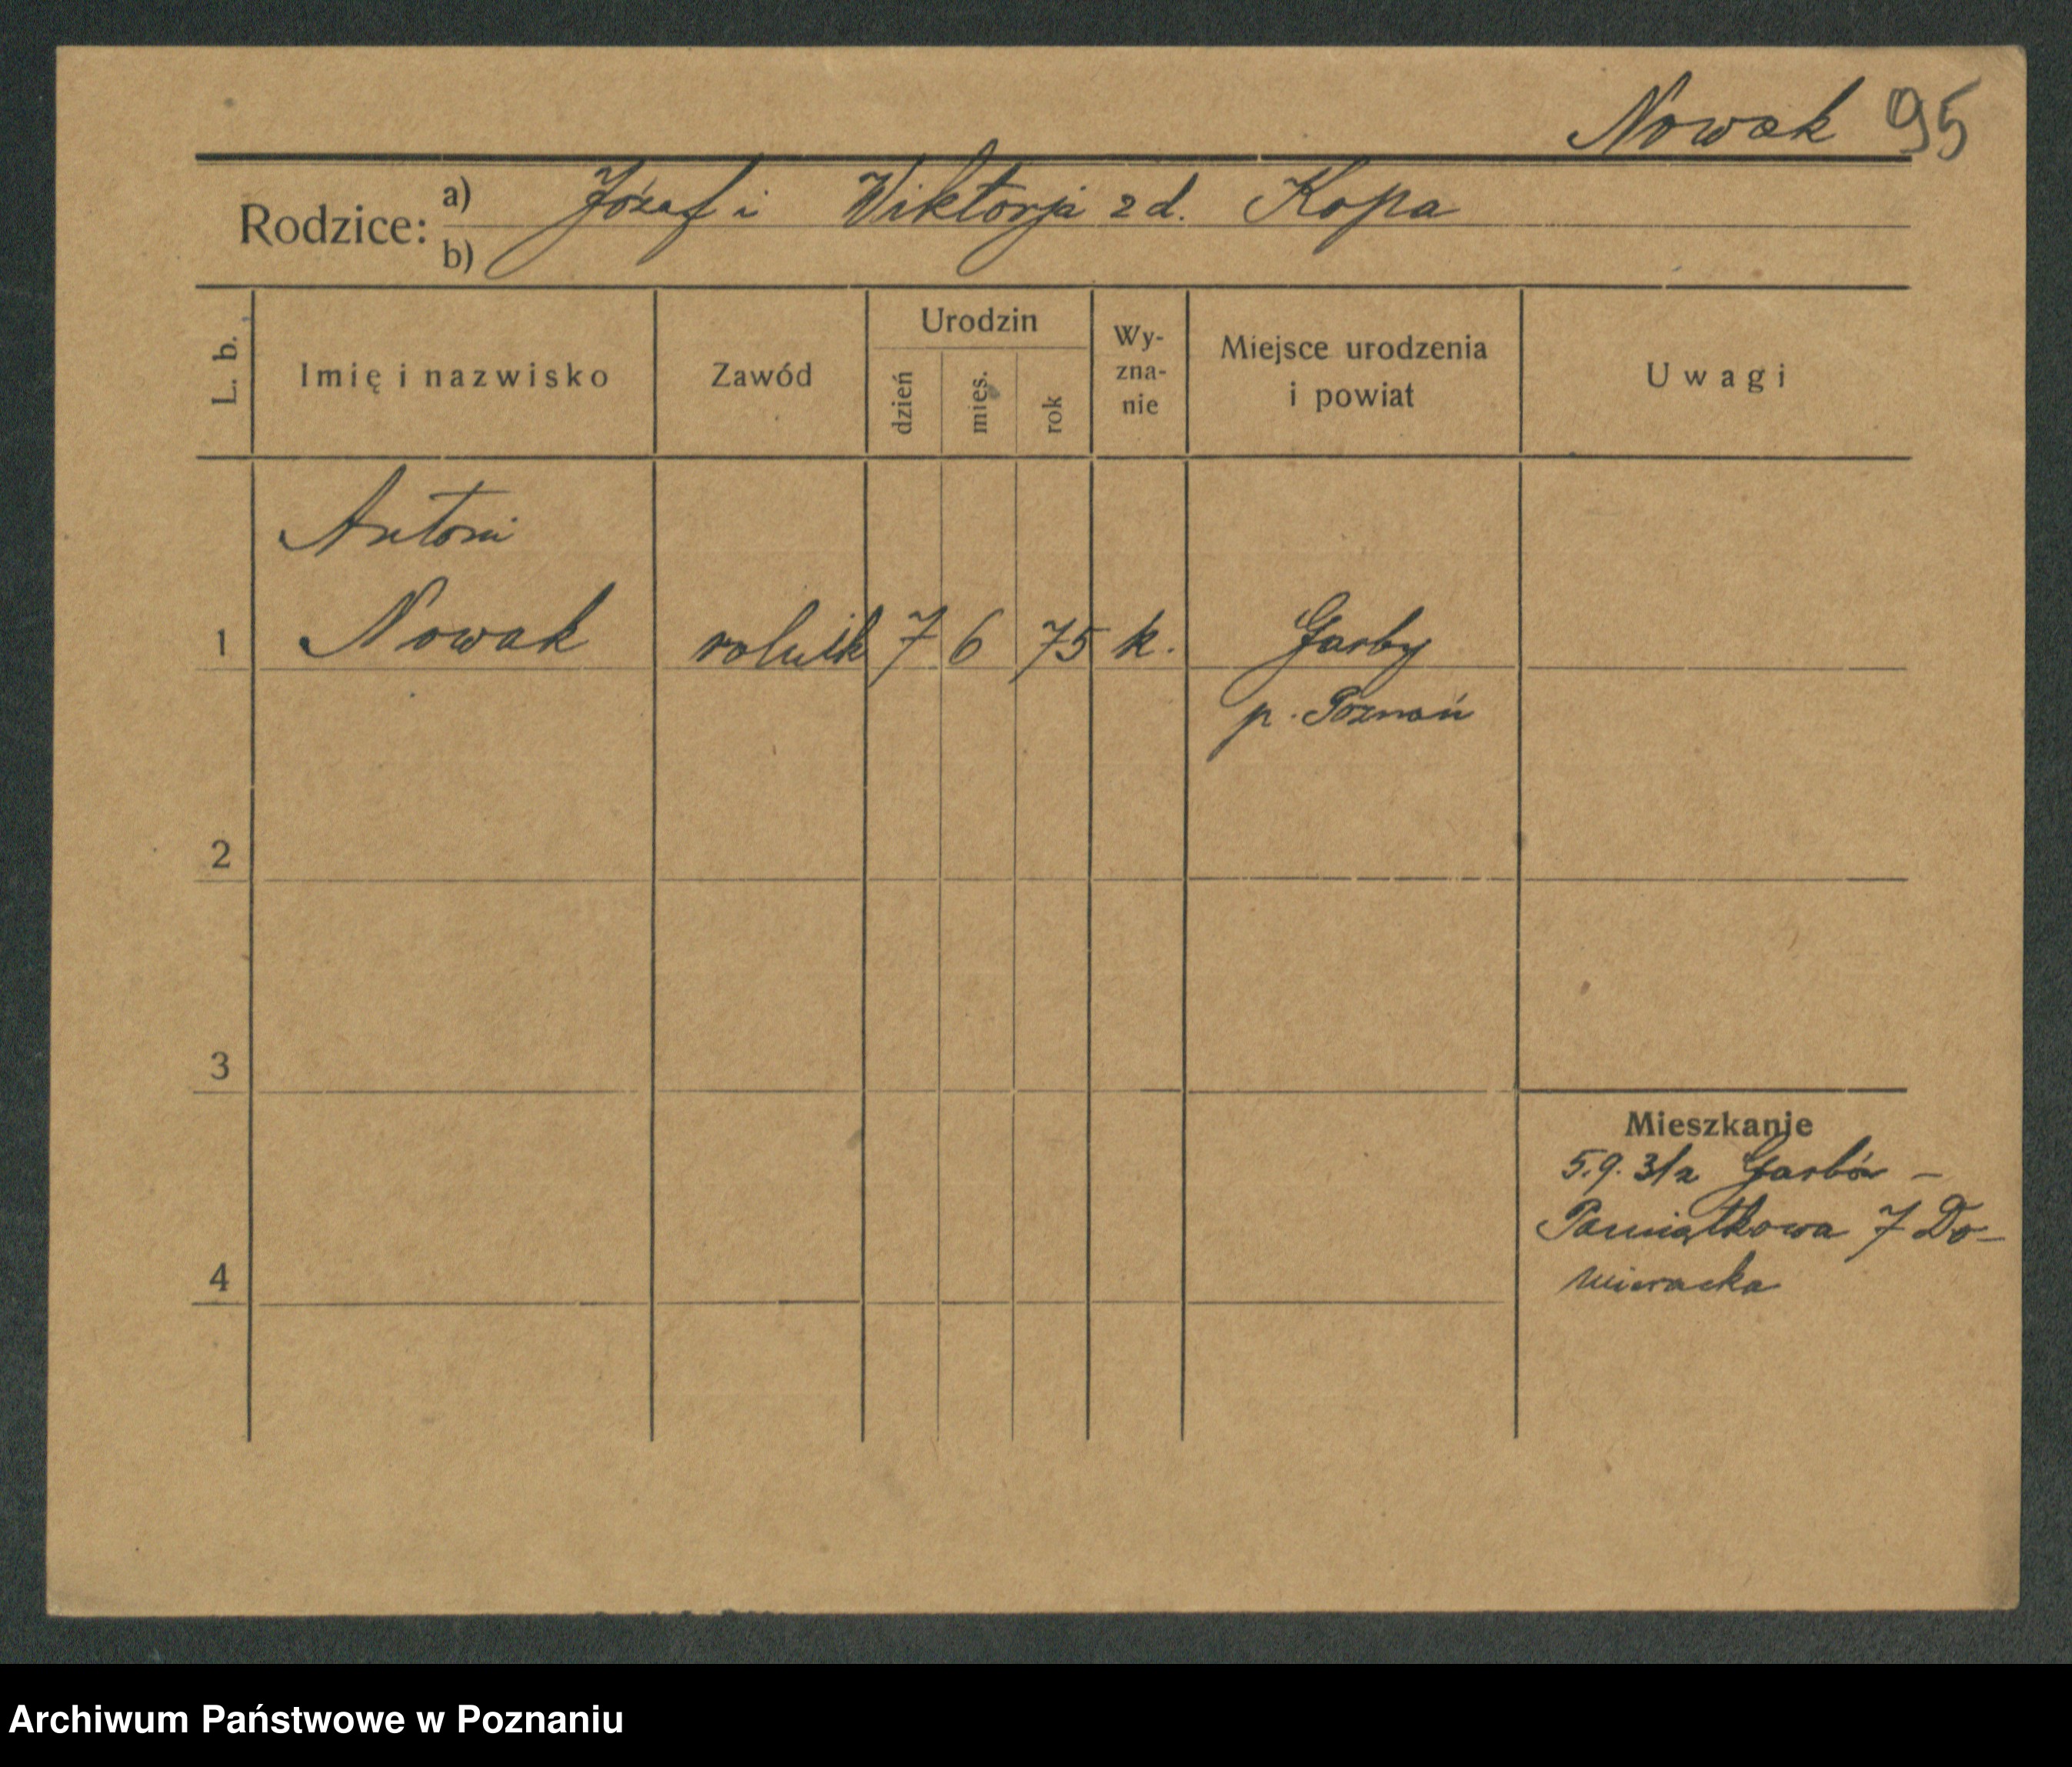 Nowak 95
Rodzice: a) Józef i Wiktorja z d. Kopa
b)
L. b. Imię i nazwisko Zawód Urodzin dzień mies. rok Wy-zna-nie Miejsce urodzenia i powiat Uwagi
Antoni
1 Nowak rolnik 7 6 75 k. Garby
p. Poznań
2
3
Mieszkanie
5.9.31 z Garbów –
Pamiątkowa 7 Do-
4
Archiwum Państwowe w Poznaniu